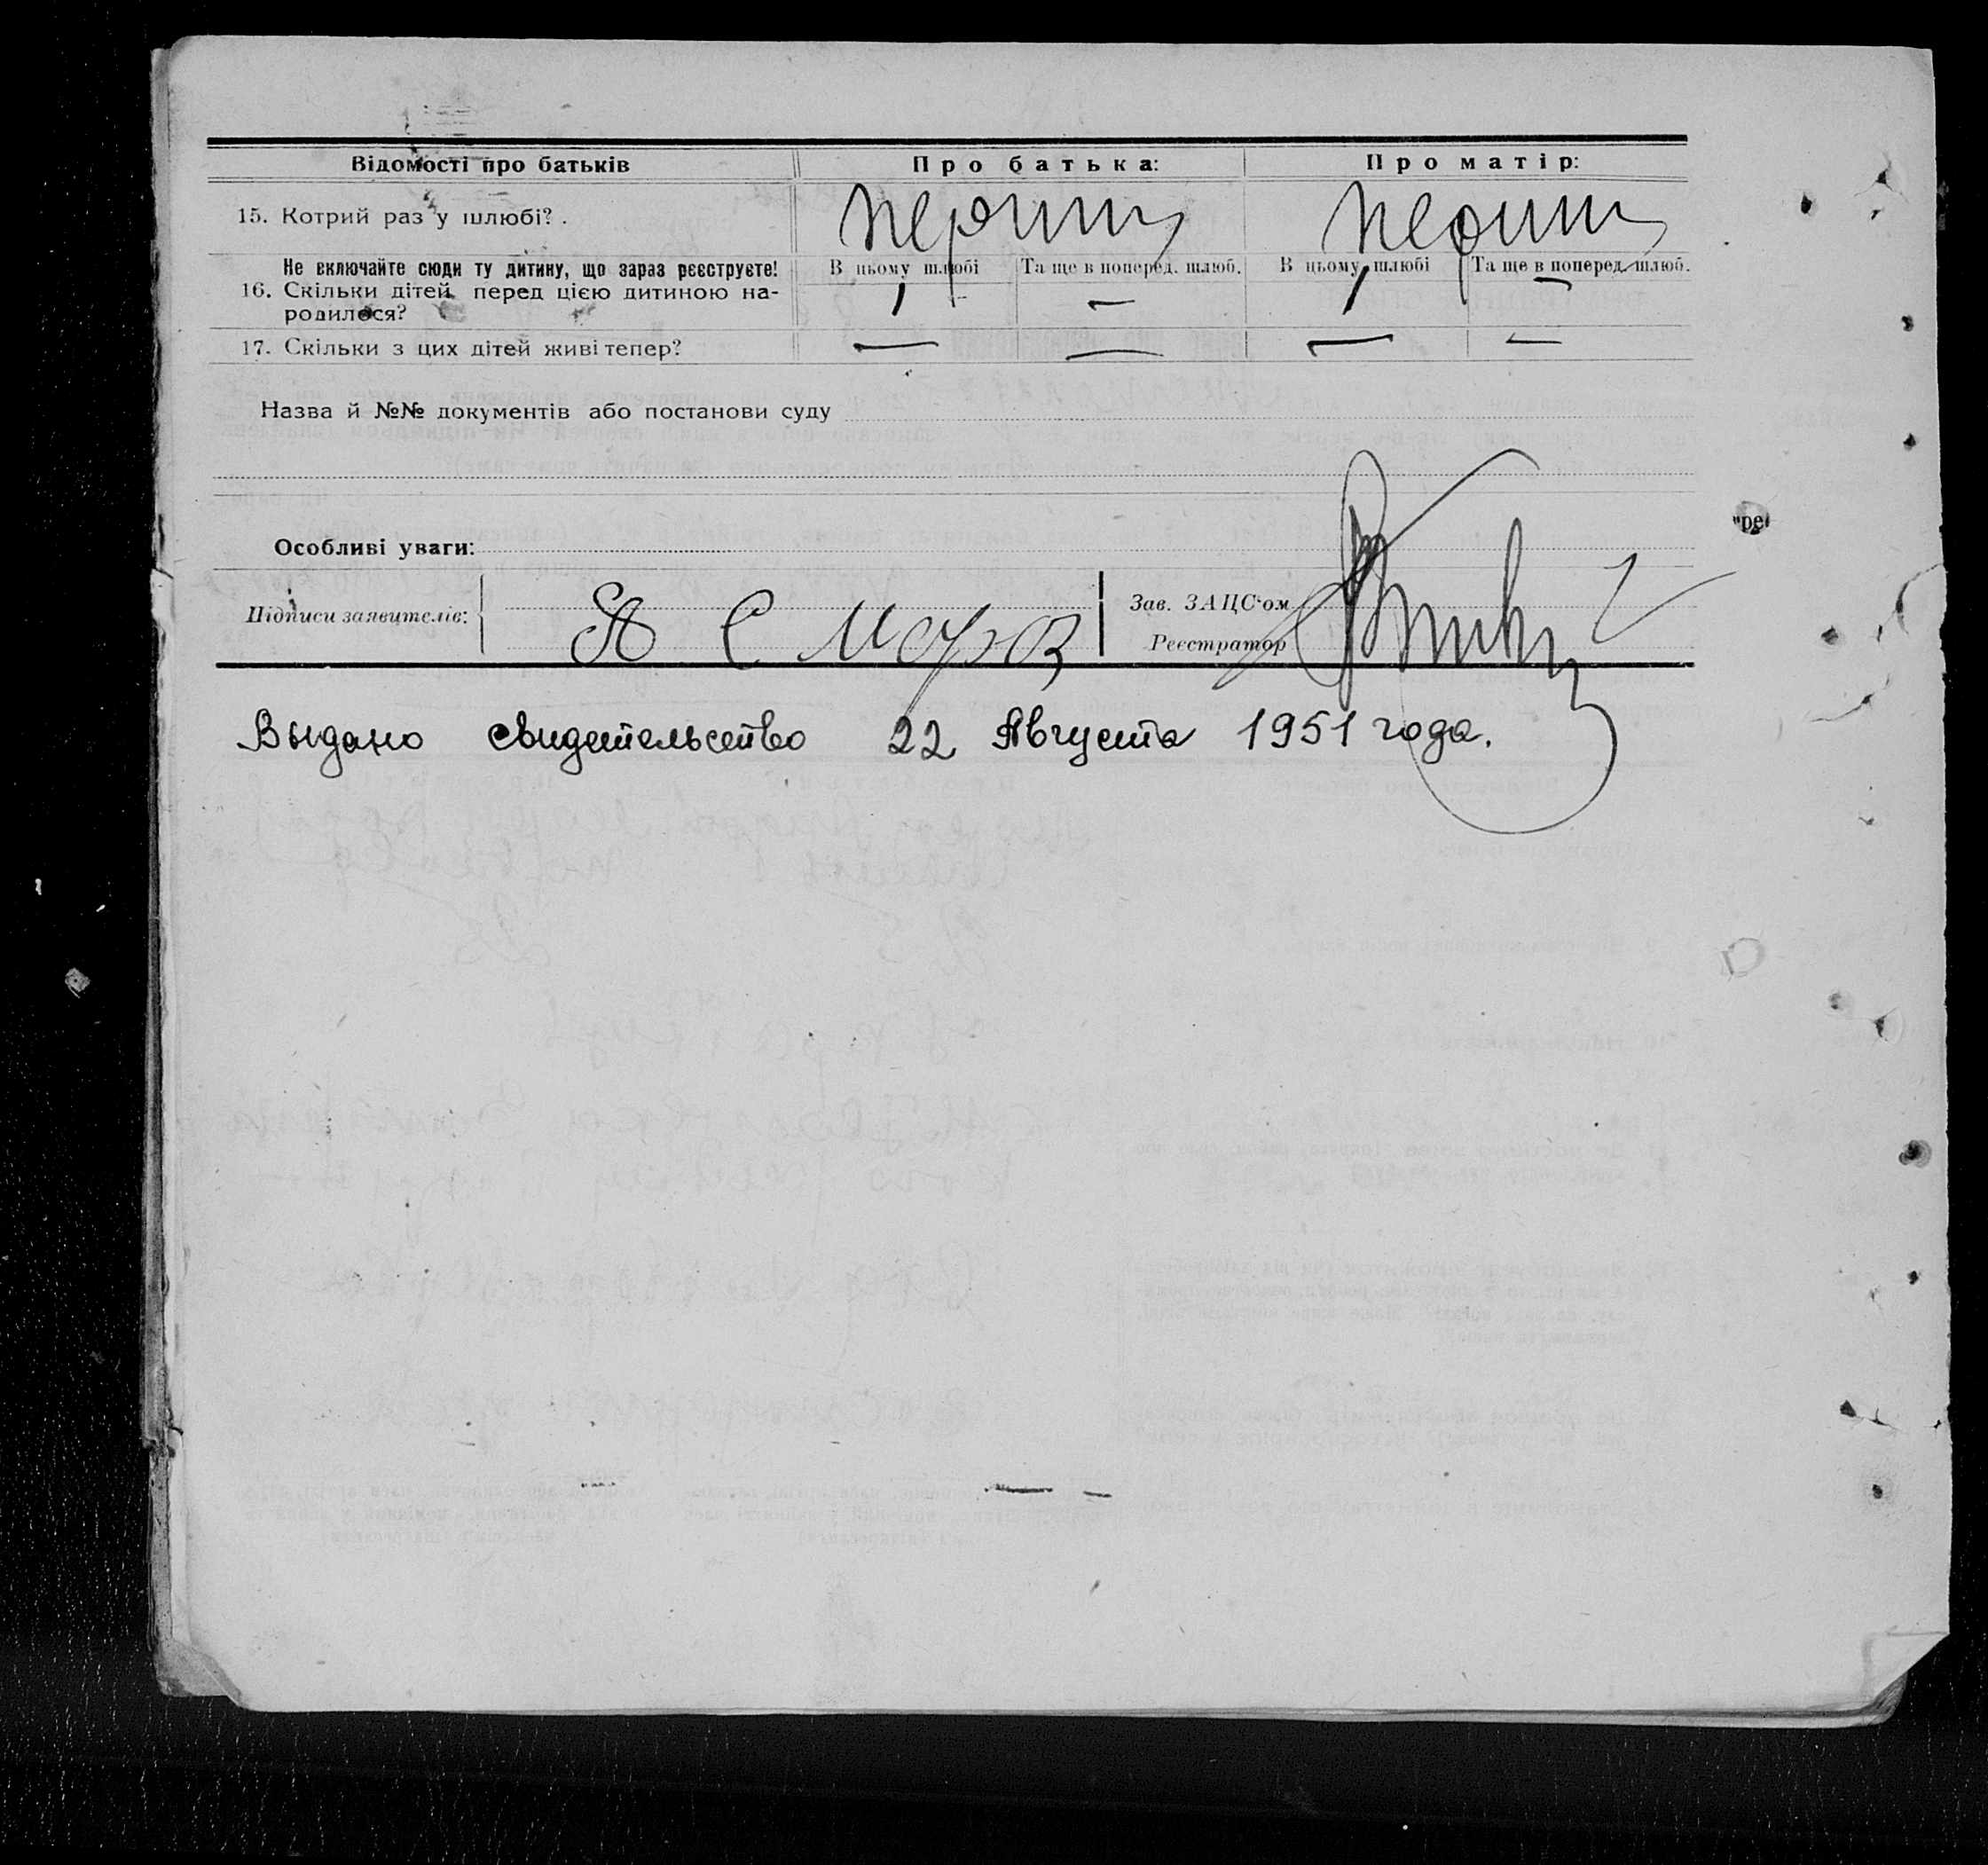 Відомості про батьків Про батька: Про матір:
15. Котрий раз у шлюбі? . перший перший
Не включайте сюди ту дитину, що зараз реєструєте! В цьому шлюбі Та ще в поперед. шлюб. В цьому шлюбі Та ще в поперед. шлюб.
16. Скільки дітей перед цією дитиною на- 1 — 1 —
родилося?
17. Скільки з цих дітей живі тепер? — — — —
Назва й №№ документів або постанови суду
Особливі уваги:
Підписи заявителів: Зав. ЗАЦС'ом
Реєстратор
Выдано свидетельство 22 Августа 1951 года.